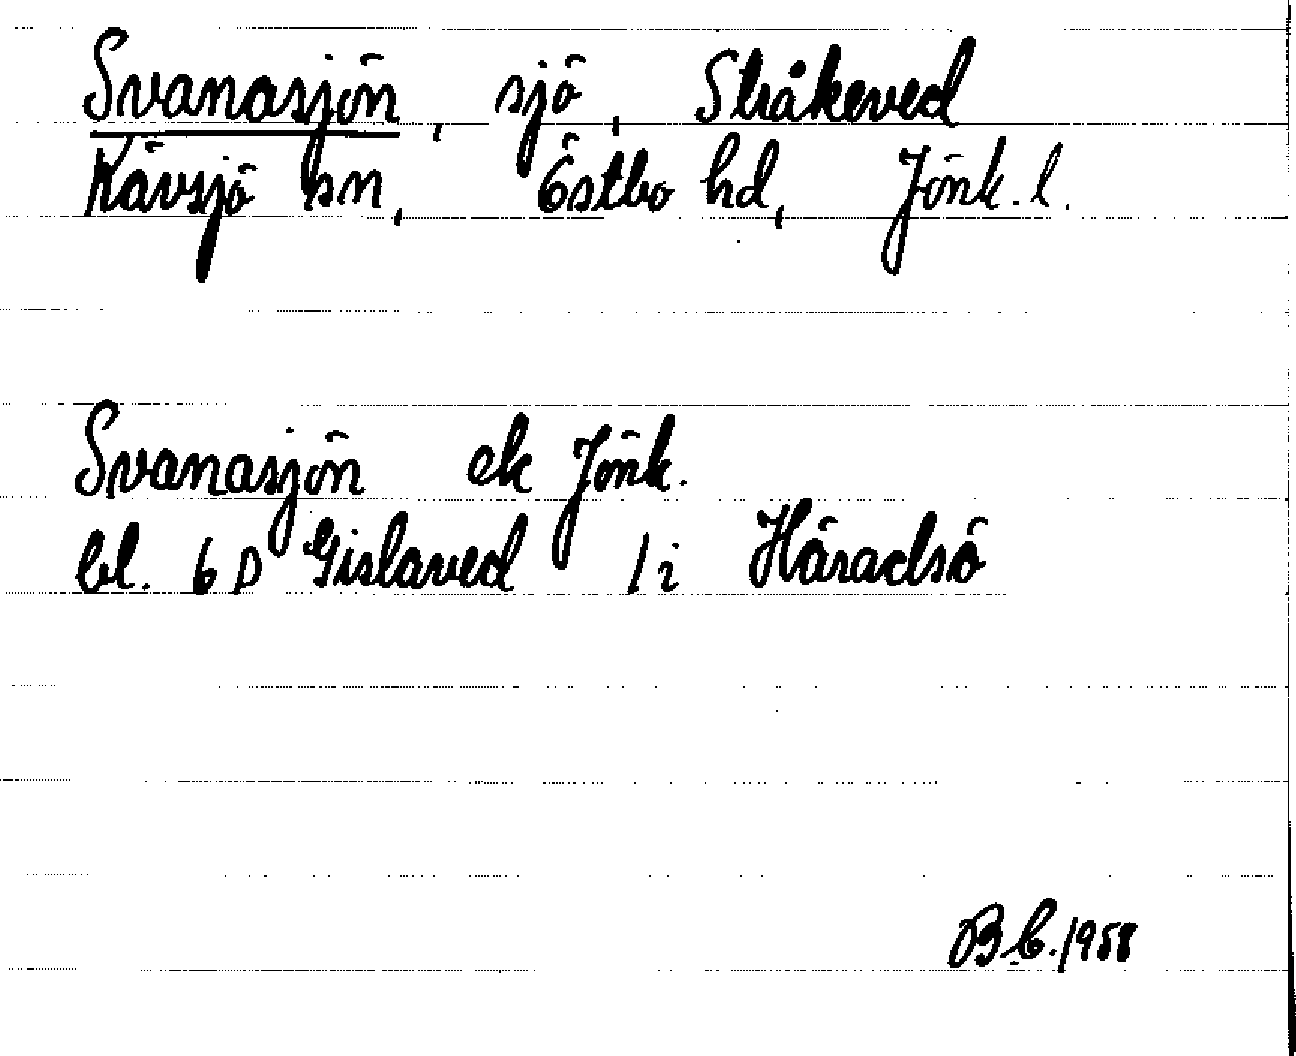 Svanasjön, sjö, Stråkeved
Kävsjö sn, Östbo hd, Jönk. l.
Svanasjön ek Jönk.
bl. 6 D Gislaved 1 i Häradsö
B C. 1958